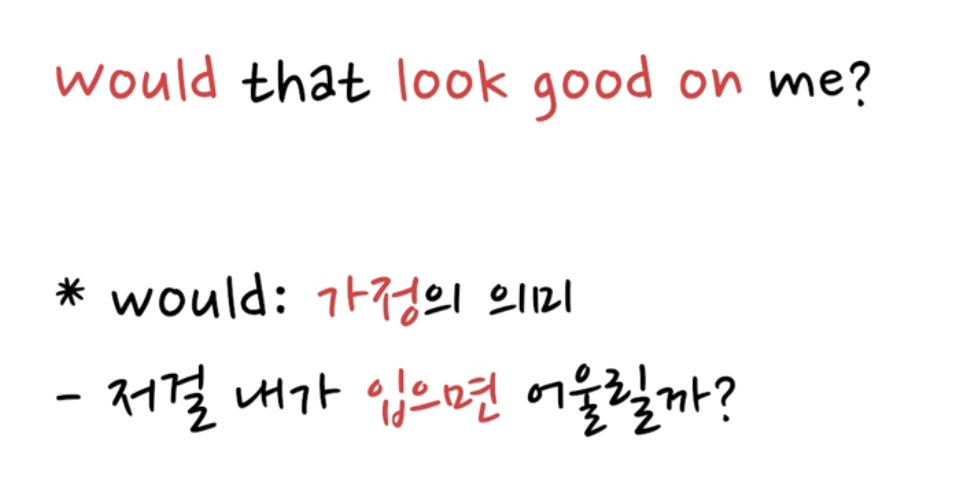 would that look good on me?
* would: 가정의 의미
- 저걸 내가 입으면 어울릴까?